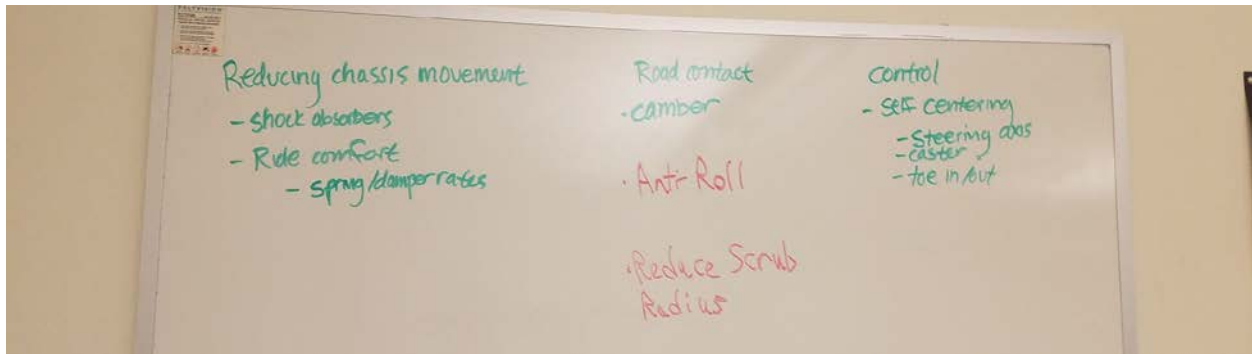 Reducing chassis movement
- shock absorbers
- Ride comfort
- spring/damper rates
Road contact
• camber
• Anti-Roll
• Reduce Scrub
Radius
control
- Self centering
- Steering axis
- caster
- toe in/out